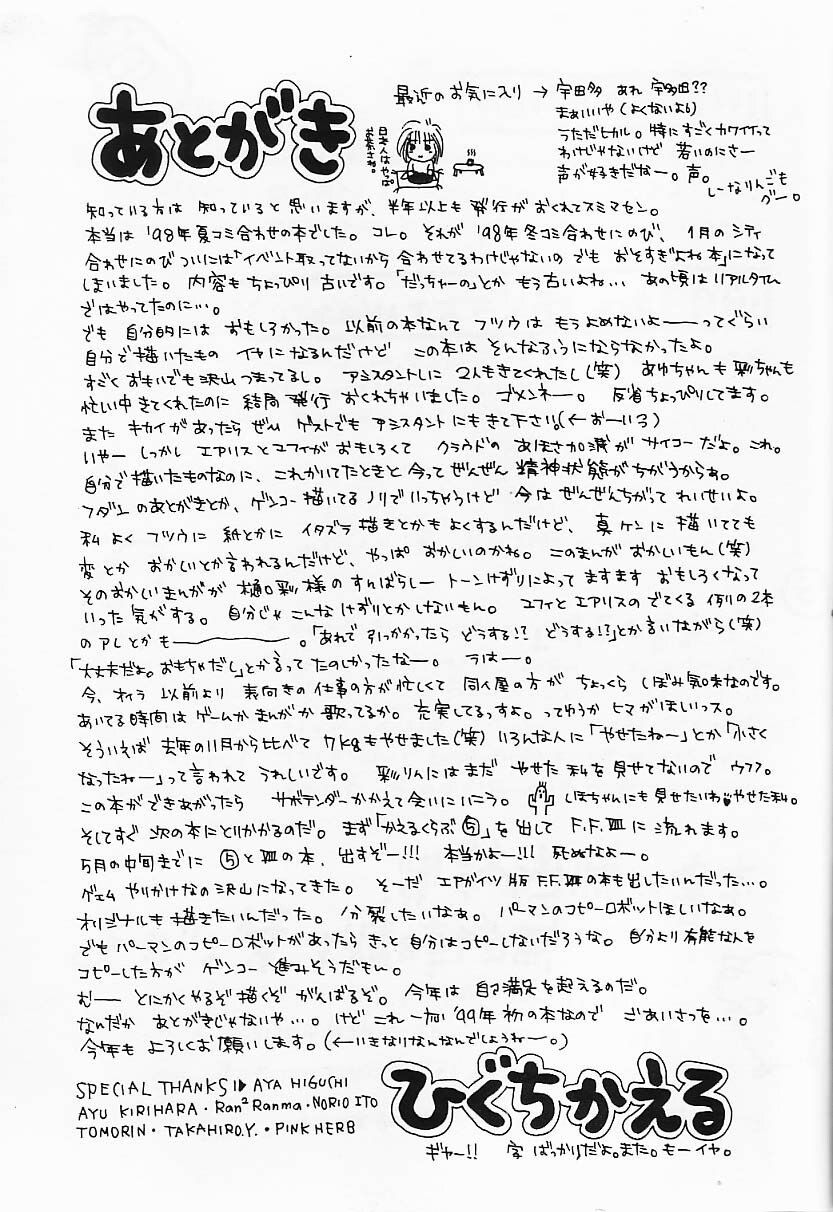 あとがき
最近のお気に入り → 宇田多 あれ 宇多田??
まぁいいや(よくないよ)
うただヒカル。特にすごくカワイイって
わけじゃないけど 若いのにさー
声が好きだなー。声。
しーなりんごも
グー。
日本人はやっぱ
お茶さね。
知っている方は 知っていると思いますが、半年以上も 発行がおくれてスミマセン。
本当は '98年夏コミ合わせの本でした。コレ。それが '98年冬コミ合わせにのび、1月の シティ
合わせにのび ついには「イベント取ってないから 合わせてるわけじゃないの でも おそすぎよね本」になって
しまいました。内容もちょっぴり 古いです。「だっちゅーの」とか もう古いよね… あの頃はリアルタイム
ではやってたのに…。
でも 自分的には おもしろかった。以前の本なんて フツウは もうよめないよ——ってぐらい
自分で描いたもの イヤになるんだけど この本は そんなふうにならなかったよ。
すごく おもいでも沢山 つまってるし。アシスタントしに 2人もきてくれたし(笑) あゆちゃんも彩ちゃんも
忙しい中 きてくれたのに 結局 発行 おくれちゃいました。ゴメンネー。反省ちょっぴりしてます。
また キカイがあったら ぜひ ゲストでも アシスタントにもきて下さい。(←おーい3)
いやー しっかし エアリスとユフィが おもしろくて クラウドの あほさ加減が サイコーだよ。これ。
自分で描いたものなのに、これかいてたときと 今って ぜんぜん 精神状態がちがうからぁ。
フダンのあとがきとか、ゲンコー描いてる ノリでいっちゃうけど 今は ぜんぜんちがって れいせいよ。
私 よく フツウに 紙とかに イタズラ描きとかも よくするんだけど、真ケンに 描いてても
変とか おかしいとか言われるんだけど、やっぱ おかしいのかね。このまんが おかしいもん(笑)
そのおかしいまんがが 樋口彩様の すばらしー トーンけずりによって ますます おもしろくなって
いった 気がする。自分じゃ こんな けずりとかしないもん。ユフィと エアリスの でてくる 例の2本
のアレとかも————。「あれで 引っかかったら どうする!? どうする!?」とか言いながら(笑)
「大丈夫だよ。おもちゃだし」とか言って たのしかったなー。うはー。
今、オイラ 以前より 表向きの仕事の方が忙しくて 同人屋の方が ちょっくら しぼみ気味なのです。
あいてる時間は ゲームか まんがか 歌ってるか。充実してるっすよ。ってゆうか ヒマがほしいっス。
そういえば 去年の11月から比べて 7kgもやせました(笑) いろんな人に「やせたねー」とか「小さく
なったねー」って言われて うれしいです。彩りんにはまだ やせた私を見せてないので ウフフ。
この本ができあがったら サボテンダーかかえて会いにいこう。しほちゃんにも見せたいわ♥やせた私。
そしてすぐ 次の本にとりかかるのだ。まず「かえるくらぶ⑤」を出して F.F.Ⅷに流れます。
5月の中旬までに ⑤とⅧの本、出すぞー!!! 本当かよー!!! 死ぬなよー。
ゲェム やりかけなの沢山になってきた。そーだ エアガイツ版 F.F.Ⅶの本も出したいんだった…。
オリジナルも 描きたいんだった。分裂したいなぁ。パーマンのコピーロボットほしいなぁ。
でも パーマンのコピーロボットがあったら きっと 自分はコピーしないだろうな。自分より有能な人を
コピーした方が ゲンコー 進みそうだもん。
むー とにかくやるぞ 描くぞ がんばるぞ。今年は 自己満足を越えるのだ。
なんだか あとがきじゃないや…。けど これ一応 '99年 初の本なので ごあいさつを…。
今年も よろしくお願いします。(←いきなりなんなんでしょうねー。)
SPECIAL THANKS!▶ AYA HIGUCHI
AYU KIRIHARA・Ran² Ranma・NORIO ITO
TOMORIN・TAKAHIRO.Y.・PINK HERB
ひぐちかえる
ギャー!! 字 ばっかりだよ。また。もーイヤ。